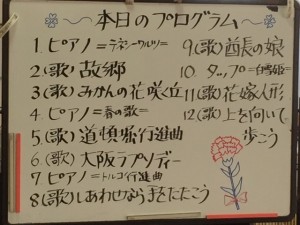 ～本日のプログラム～
1. ピアノ=テネシーワルツ=
2 (歌) 故郷
3 (歌) みかんの花咲く丘
4. ピアノ=春の歌=
5 (歌) 道頓堀行進曲
6 (歌) 大阪ラプソディー
7 ピアノ=トルコ行進曲
8 (歌) しあわせなら手をたたこう
9 (歌) 酋長の娘
10. タップ=白雪姫=
11 (歌) 花嫁人形
12 (歌) 上を向いて
歩こう